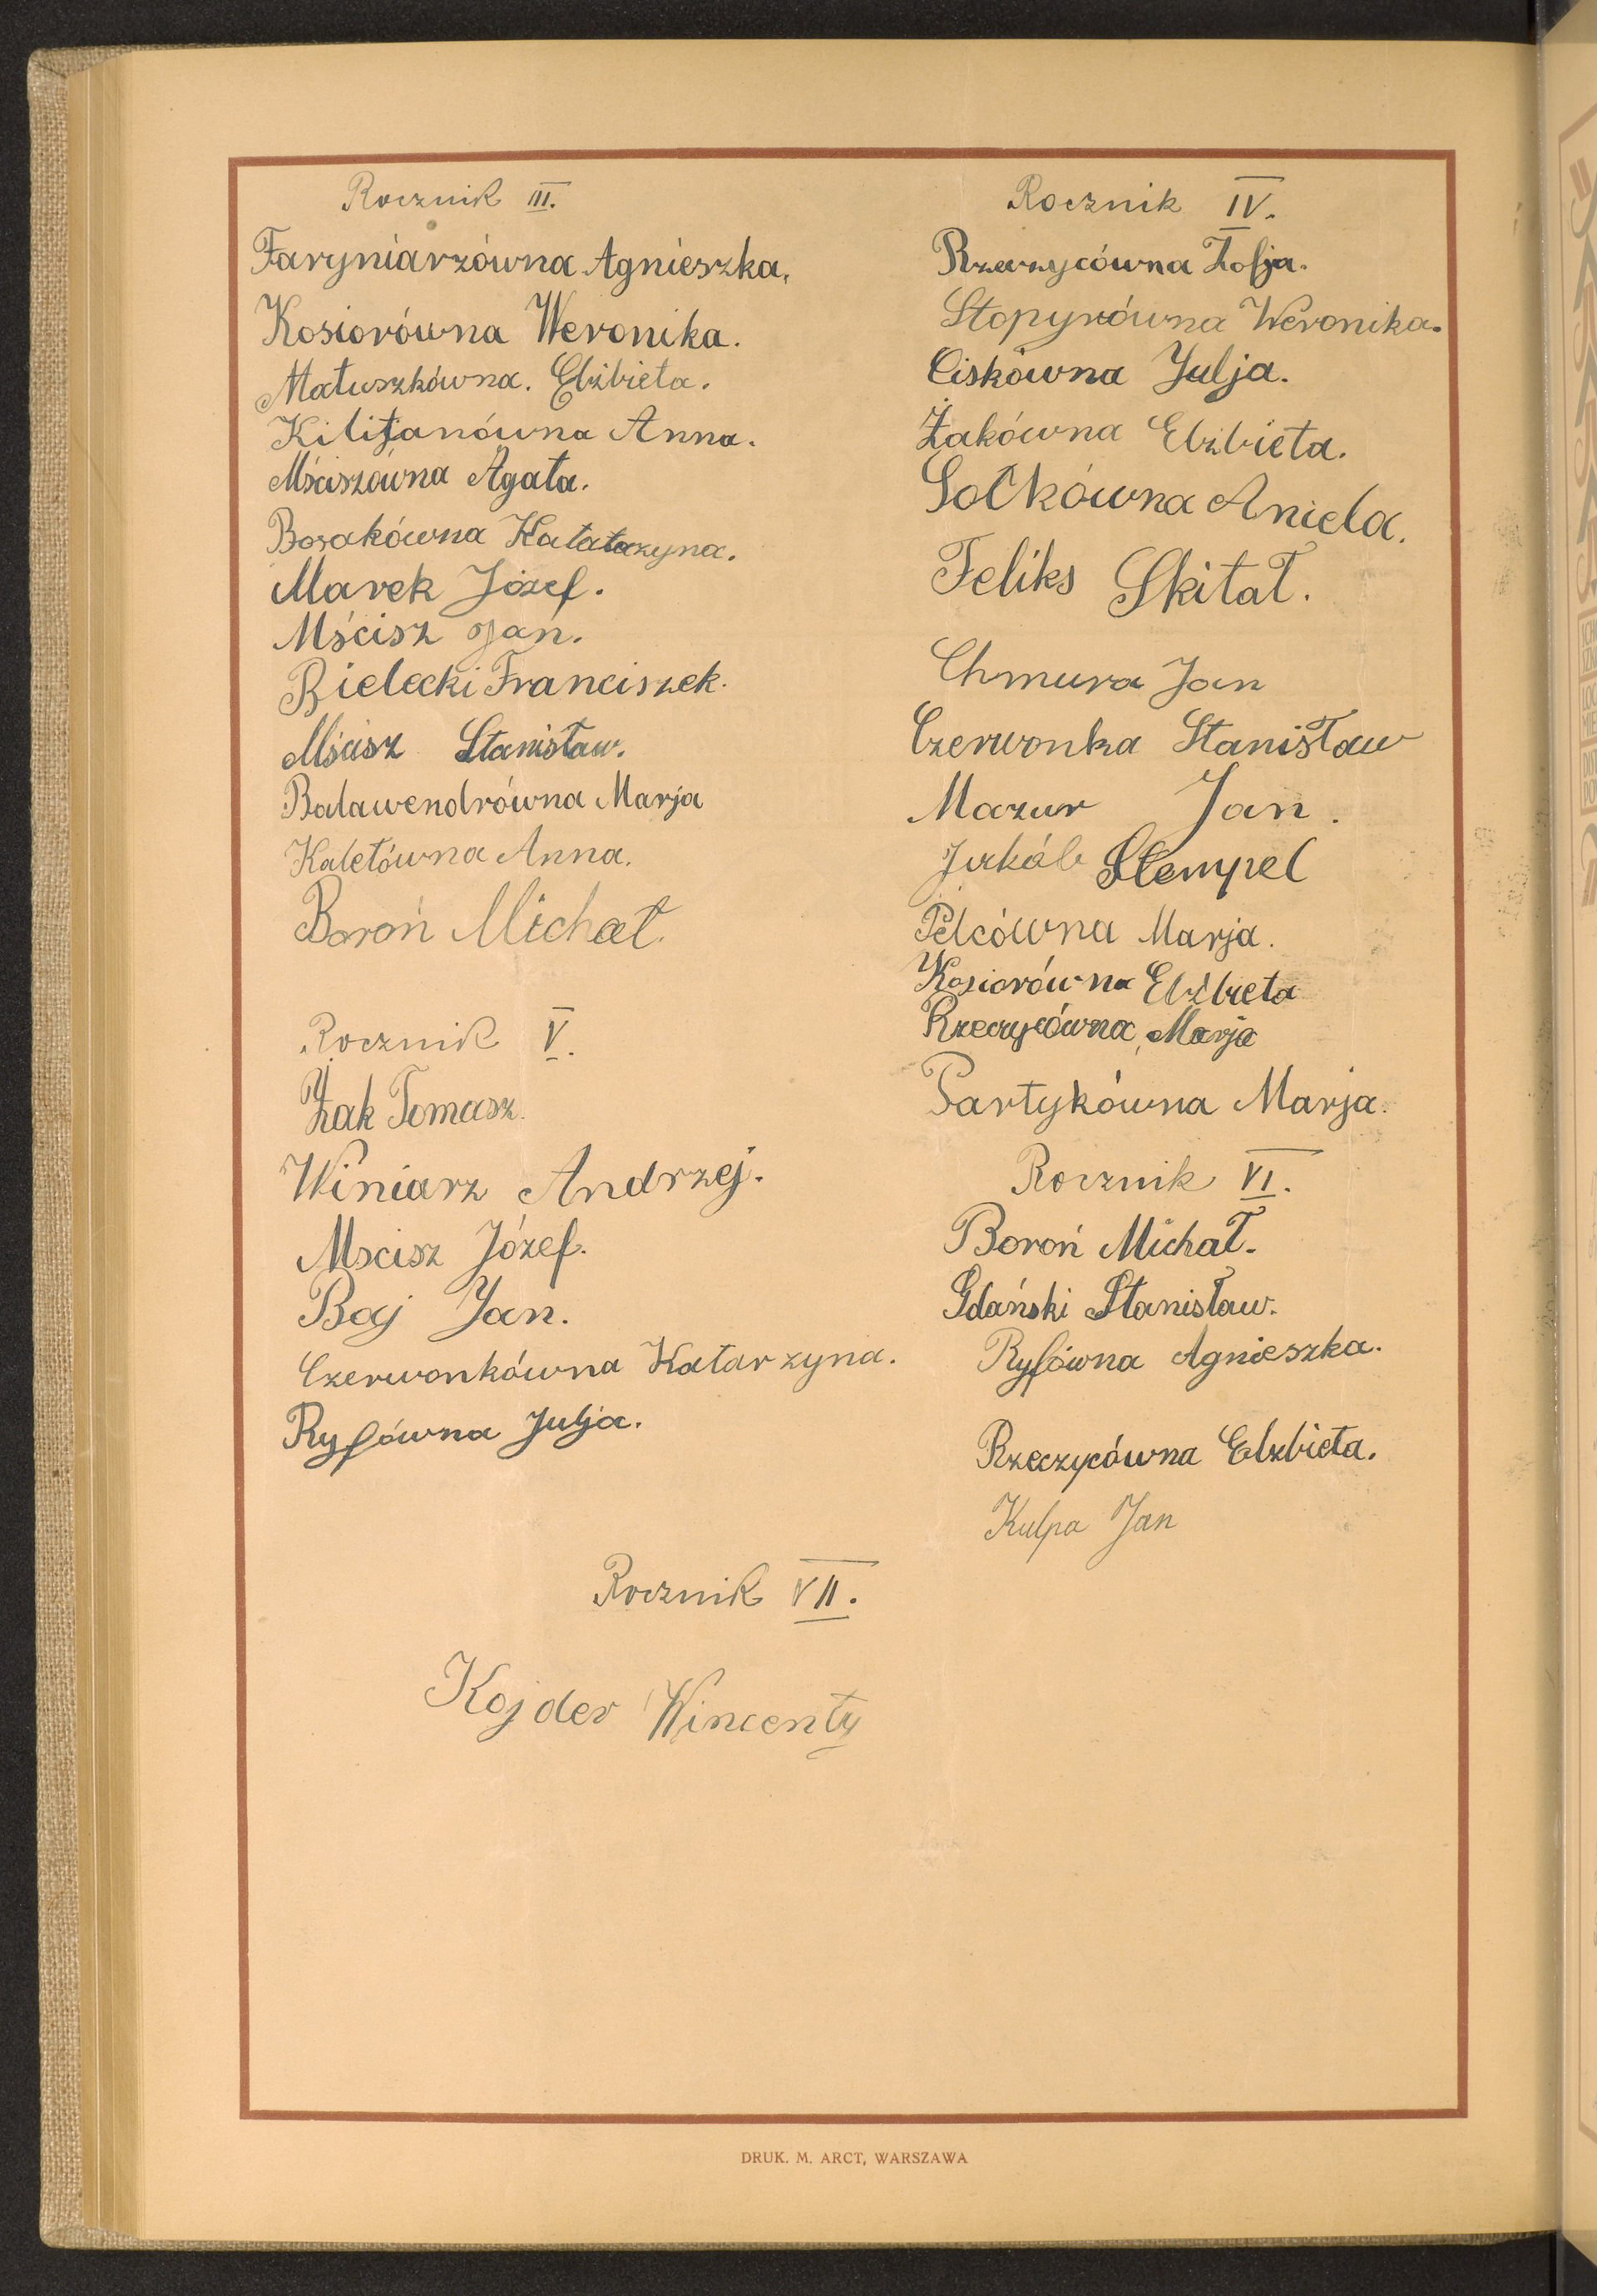 Rocznik III.
Faryniarzówna Agnieszka.
Kosiorówna Weronika.
Matuszkówna. Elżbieta.
Kilijanówna Anna.
Mściszówna Agata.
Bosakówna Katatazyna.
Marek Józef.
Mścisz Jan.
Bielecki Franciszek.
Mścisz Stanisław.
Balawendrówna Marja
Kaletówna Anna.
Boroń Michał.
Rocznik V.
Żak Tomasz.
Winiarz Andrzej.
Mscisz Józef.
Baj Jan.
Czerwonkówna Katarzyna.
Ryfówna Julja.
Rocznik IV.
Rzeczycówna Zofja.
Stopyrówna Weronika.
Ciskówna Julja.
Żakówna Elżbieta.
Sołkówna Aniela.
Feliks Skitał.
Chmura Jan
Czerwonka Stanisław
Mazur Jan.
Jakób Stempel
Pelcówna Marja.
Kosiorówna Elżbieta
Rzeczycówna Marja
Partykówna Marja.
Rocznik VI.
Boroń Michał.
Gdański Stanisław.
Ryfówna Agnieszka.
Rzeczycówna Elżbieta.
Kulpa Jan
Rocznik VII.
Kojder Wincenty
DRUK. M. ARCT, WARSZAWA